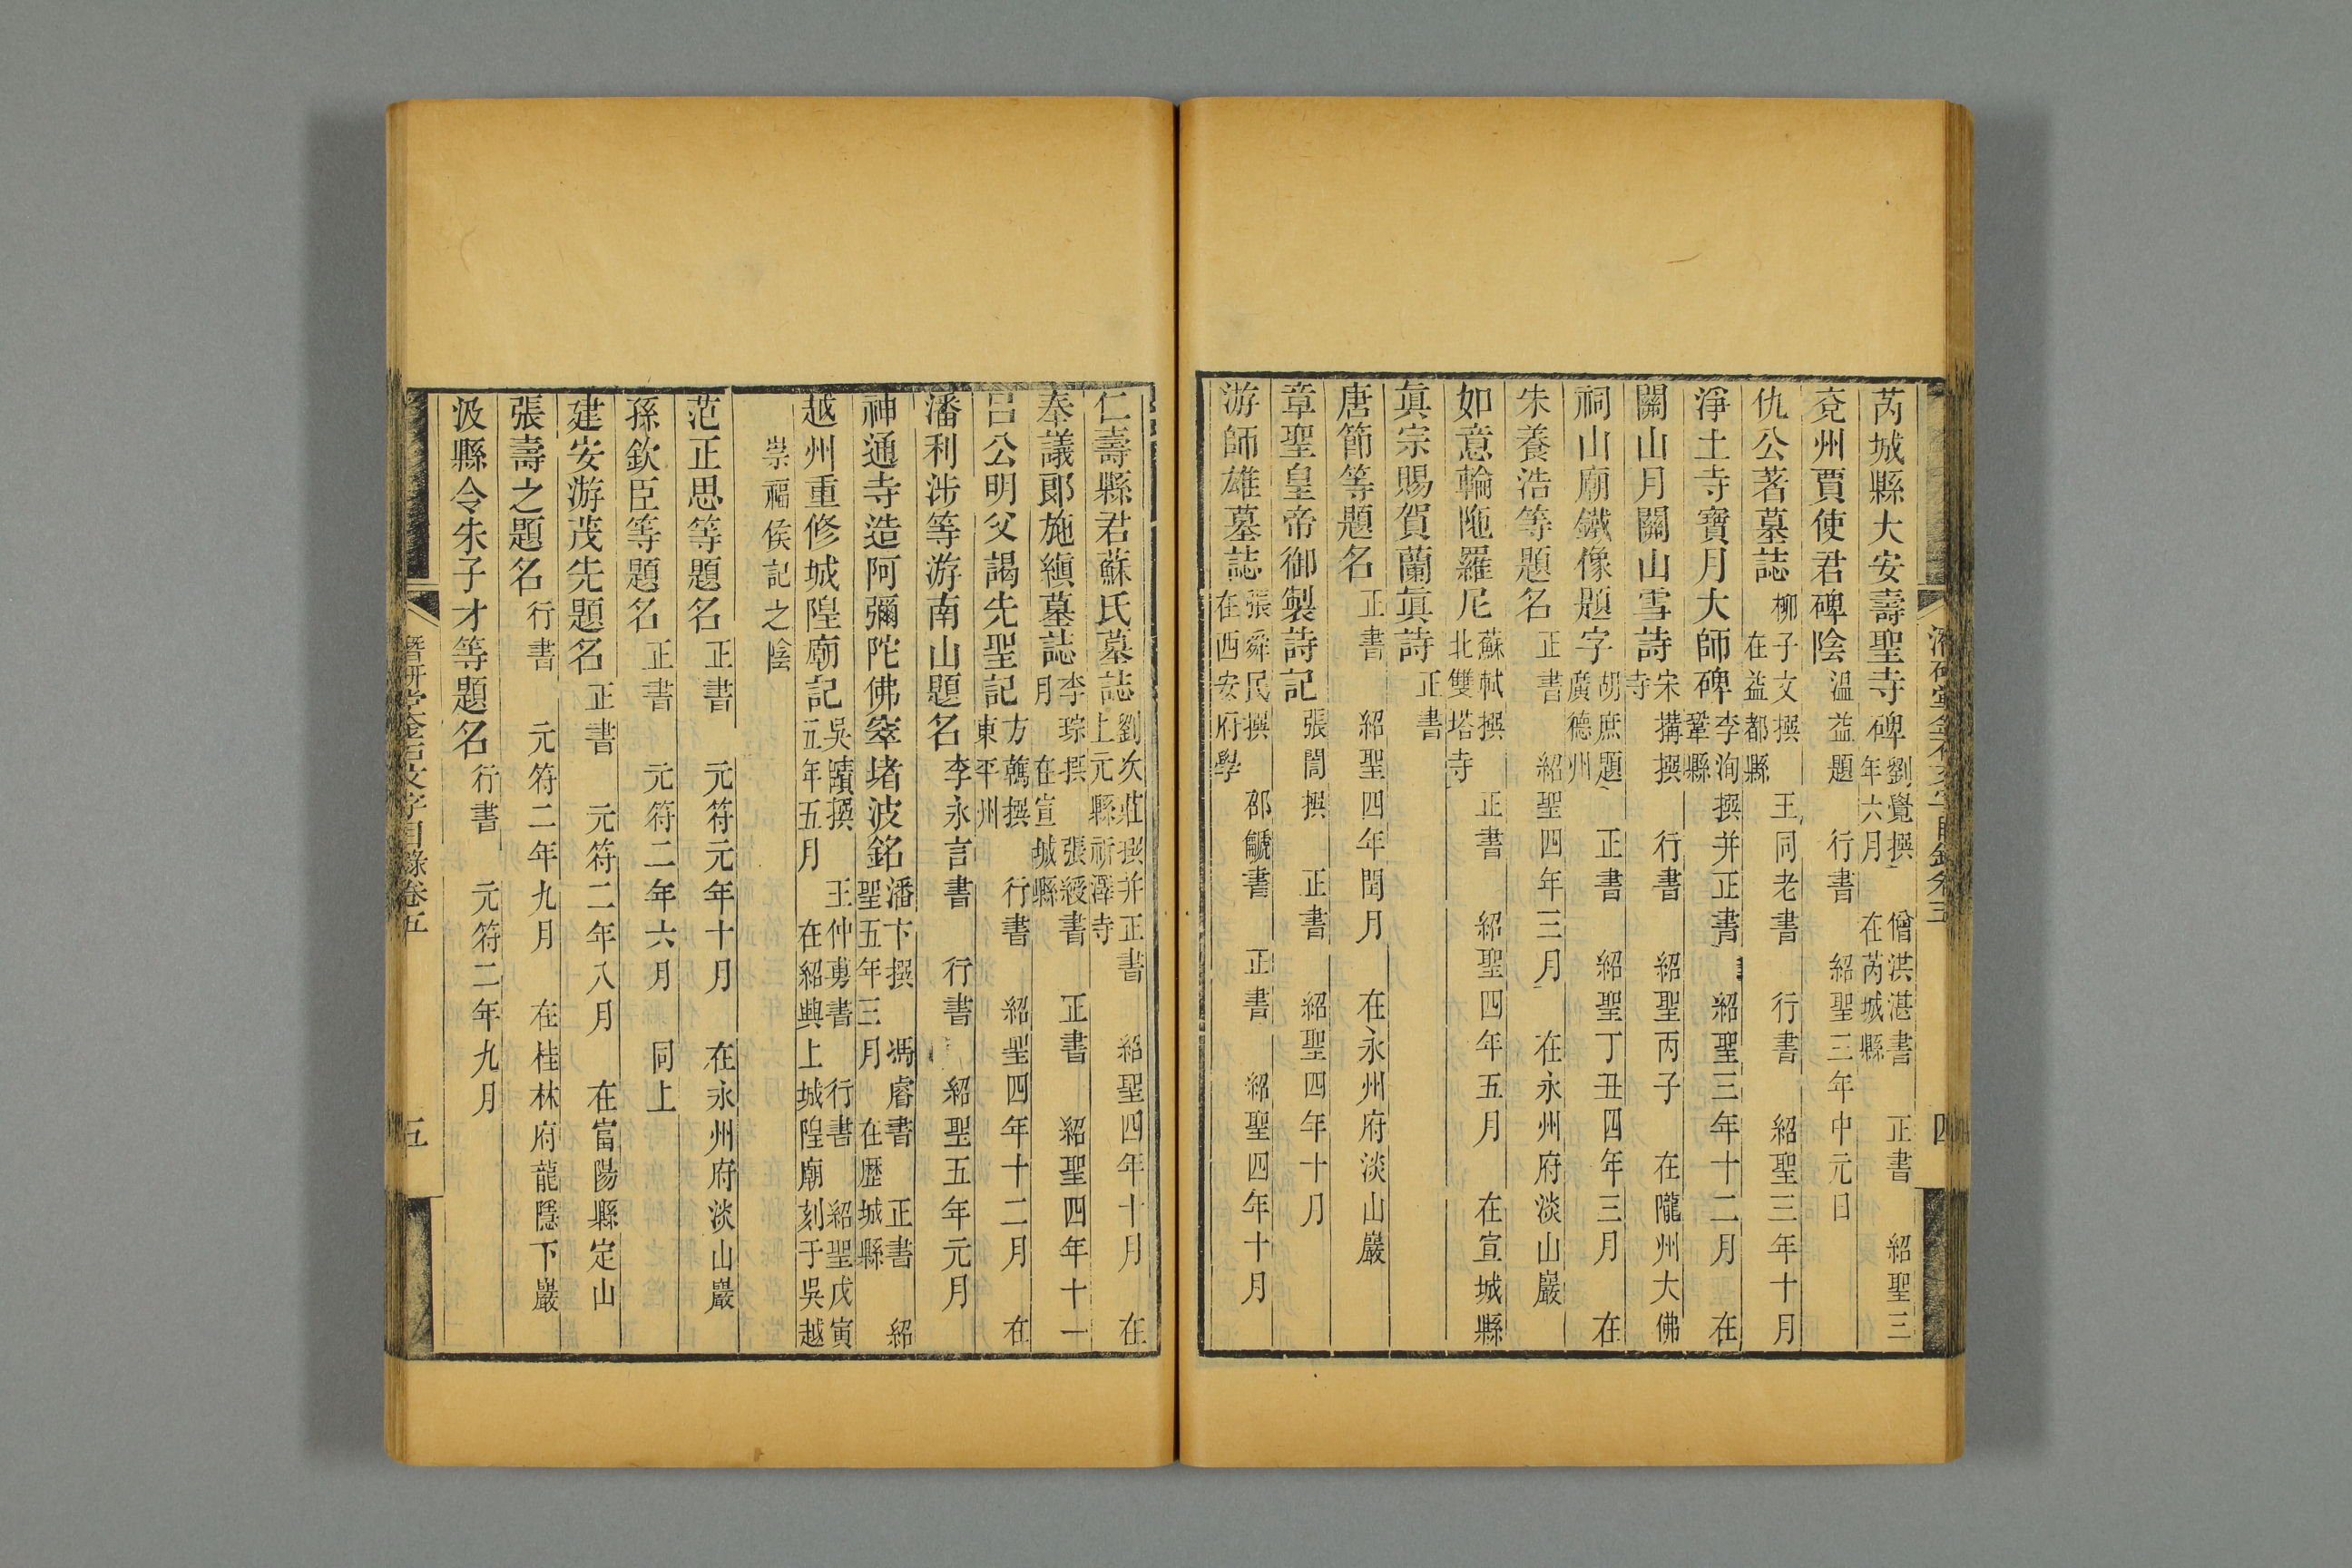 芮城縣大安壽聖寺碑 劉覺撰 僧洪湛書 正書 紹聖三年六月 在芮城縣
兗州賈使君碑陰 温益題 行書 紹聖三年中元日
仇公著墓誌 柳子文撰 王同老書 行書 紹聖三年十月 在益都縣
淨土寺寶月大師碑 李洵撰并正書 紹聖三年十二月 在鞏縣
關山月關山雪詩 宋構撰 行書 紹聖丙子 在隴州大佛寺
祠山廟鐵像題字 胡庶題 正書 紹聖丁丑四年三月 在廣德州
朱養浩等題名 正書 紹聖四年三月 在永州府淡山巖
如意輪陁羅尼 蘇軾撰 正書 紹聖四年五月 在宣城縣北雙塔寺
眞宗賜賀蘭眞詩 正書
唐節等題名 正書 紹聖四年閏月 在永州府淡山巖
章聖皇帝御製詩記 張閶撰 正書 紹聖四年十月
游師雄墓誌 張舜民撰 邵䶵書 正書 紹聖四年十月 在西安府學
四
仁壽縣君蘇氏墓誌 劉次莊撰并正書 紹聖四年十月 在上元縣祈澤寺
奉議郎施縝墓誌 李琮撰 張綬書 正書 紹聖四年十一月 在宣城縣
呂公明父謁先聖記 方䳽撰 行書 紹聖四年十二月 在東平州
潘利涉等游南山題名 李永言書 行書 紹聖五年元月
神通寺造阿彌陀佛窣堵波銘 潘卞撰 馮睿書 正書 紹聖五年三月 在歷城縣
越州重修城隍廟記 吳賾撰 王仲甬書 行書 紹聖戊寅五年五月 在紹興上城隍廟刻于吳越
崇福侯記之陰
范正思等題名 正書 元符元年十月 在永州府淡山巖
孫欽臣等題名 正書 元符二年六月 同上
建安游茂先題名 正書 元符二年八月 在富陽縣定山
張壽之題名 行書 元符二年九月 在桂林府龍隱下巖
汲縣令朱子才等題名 行書 元符二年九月
潛研堂金石文字目錄卷五
五